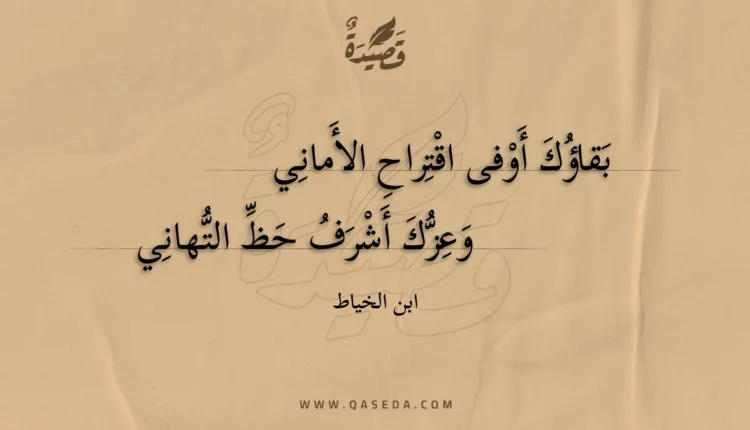 قَصِيدَةٌ
بَقاؤُكَ أَوْفى اقْتِراحِ الأَمانِي
وَعِزُّكَ أَشْرَفُ حَظِّ التُّهانِي
ابن الخياط
WWW.QASEDA.COM